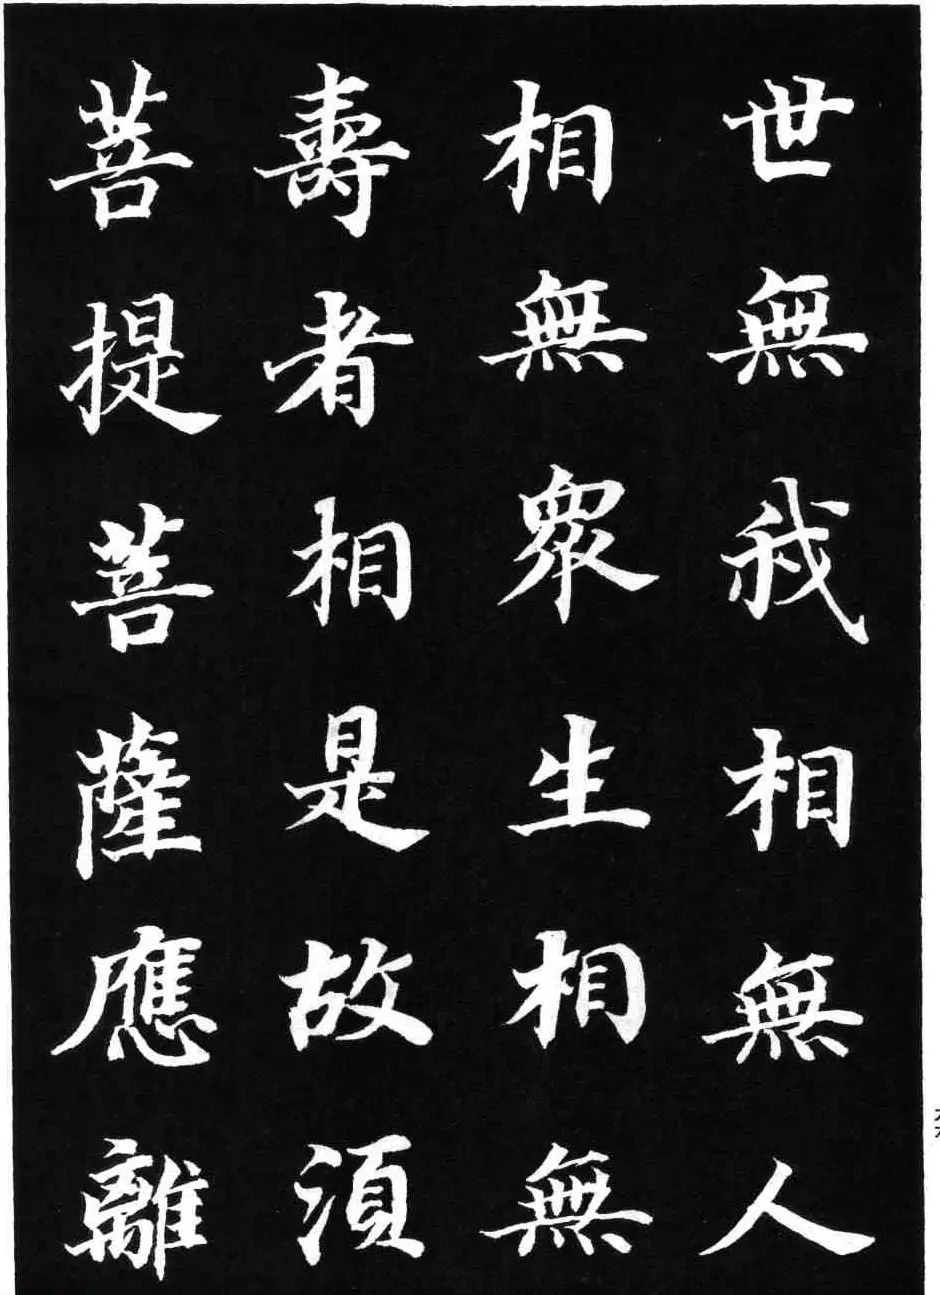 世無我相無人
相無眾生相無
壽者相是故須
菩提菩薩應離